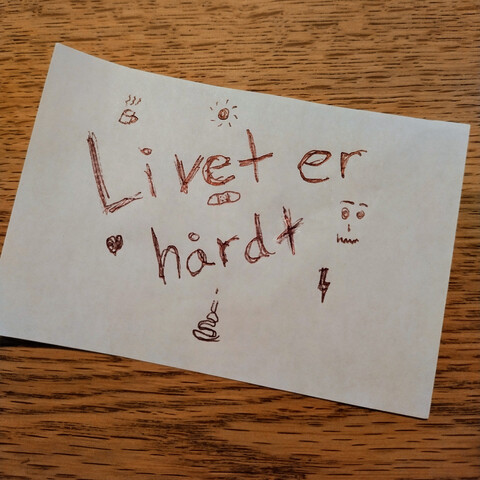 Livet er
hårdt